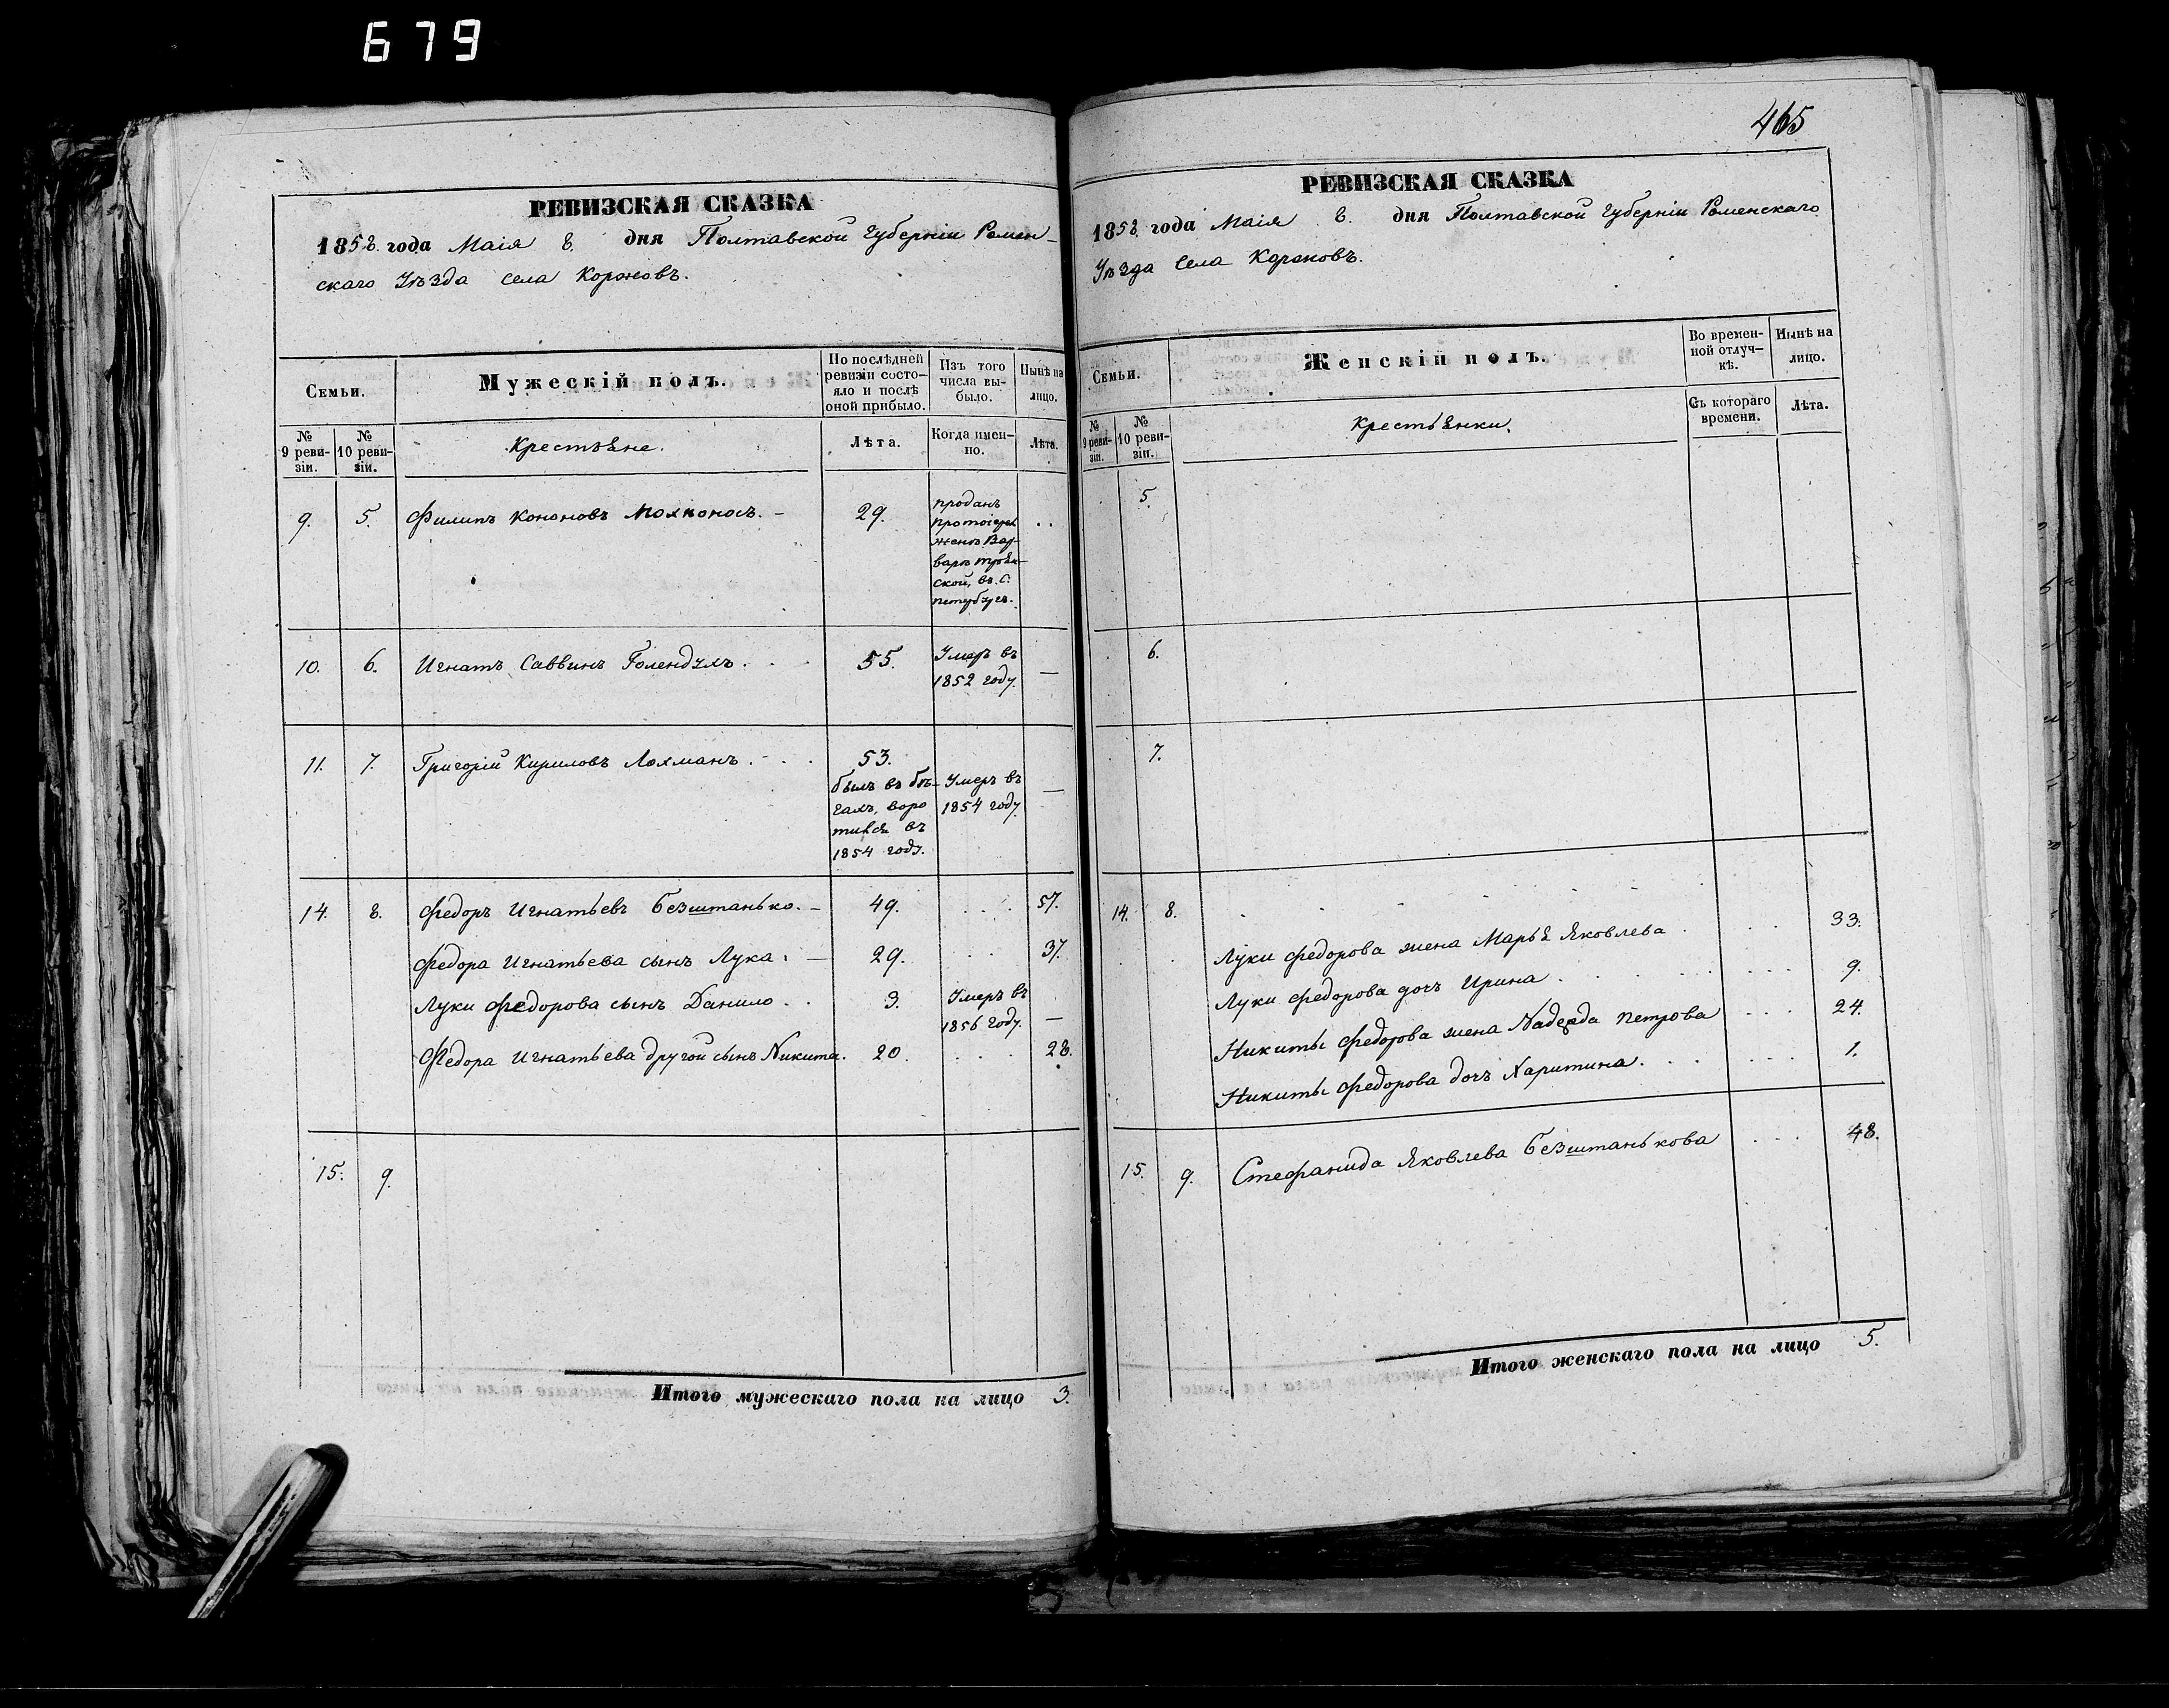 679
465
РЕВИЗСКАЯ СКАЗКА
1858. года Маія 8. дня Полтавской губерніи Ромен-
скаго Уѣзда села Короновъ.
Семьи.
Мужескій полъ.
По послѣдней
ревизіи состо-
яло и послѣ
оной прибыло.
Изъ того
числа вы-
было.
Нынѣ на
лицо.
№
9 реви-
зіи.
№
10 реви-
зіи.
Крестьяне.
Лѣта.
Когда имен-
но.
Лѣта.
9. 5. Филипъ Кононовъ 29.
проданъ
женѣ Вар-
варѣ
ской, въ С.
10. 6. Игнатъ Саввинъ 55. Умеръ въ —
1852 году.
11. 7. Григорій Кириловъ Лохманъ. 53.
былъ въ бѣ- Умеръ въ —
гахъ, воро 1854 году.
тился въ
1854 году.
14. 8. Федоръ Игнатьевъ Безштанько. — 49. 57.
Федора Игнатьева сынъ Лука. — 29. 37.
Луки Федорова сынъ Данило. 3. Умеръ въ —
1856 году.
Федора Игнатьева другой сынъ Никита. 20. 28.
15. 9.
Итого мужескаго пола на лицо 3.
РЕВИЗСКАЯ СКАЗКА
1858. года Маія 8. дня Полтавской губерніи Роменскаго
Уѣзда села Короновъ.
Семьи.
Женскій полъ.
Во времен-
ной отлуч-
кѣ.
Нынѣ на
лицо.
№
9 реви-
зіи.
№
10 реви-
зіи.
Крестьянки.
Съ котораго
времени.
Лѣта.
5.
6.
7.
14. 8.
Луки Федорова жена Марья Яковлева. 33.
Луки Федорова дочь Ирина. 9.
Никиты Федорова жена Надежда Петрова 24.
Никиты Федорова дочь Харитина. 1.
15. 9. Стефанида Яковлева Безштанькова 48.
Итого женскаго пола на лицо 5.